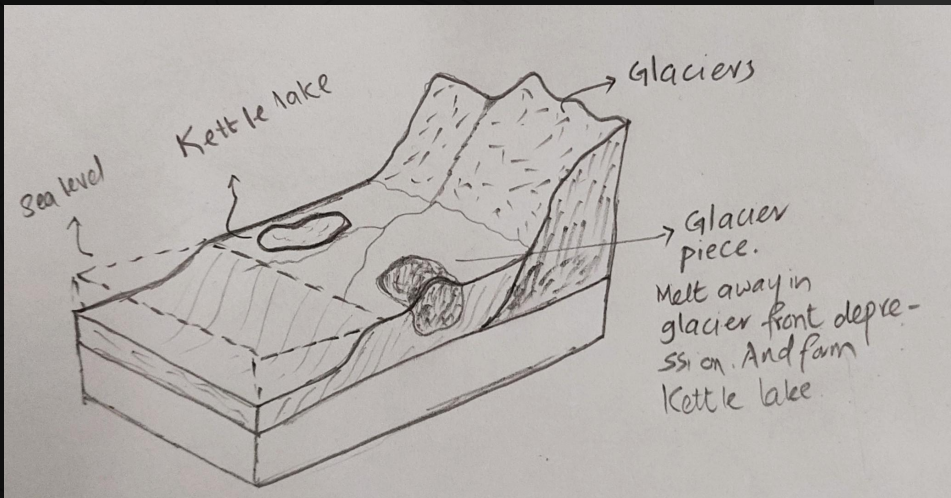 Glaciers
Kettle lake
Sea level
Glacier
piece.
Melt away in
glacier front depre-
ssion. And form
Kettle lake